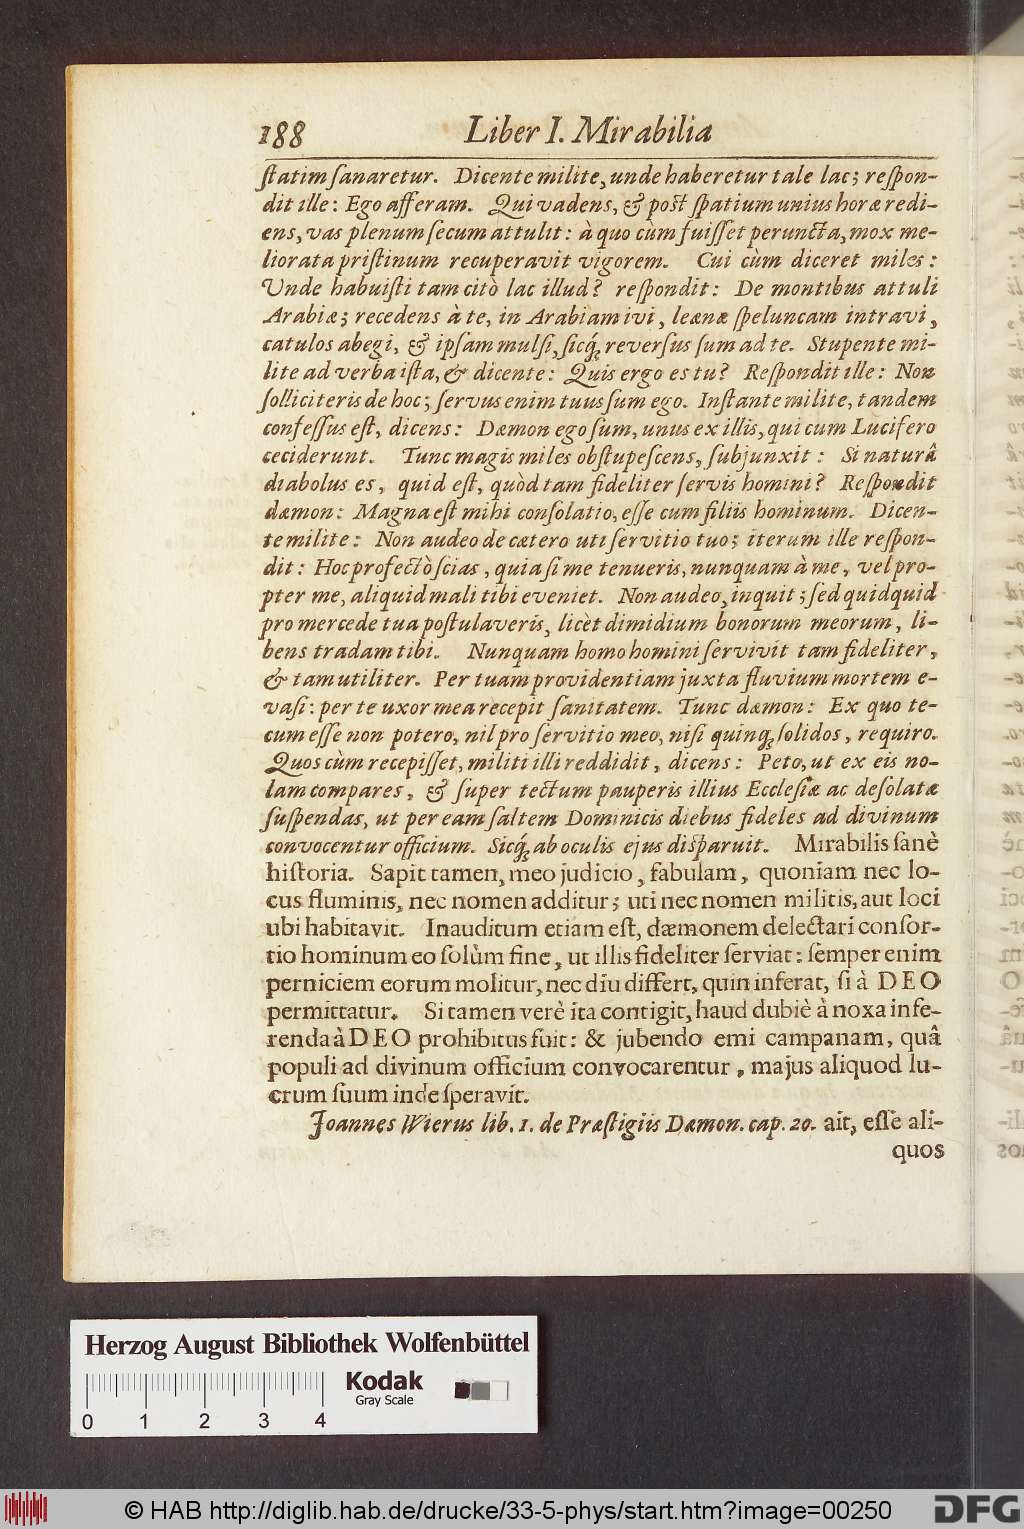 188 Liber I. Mirabilia
ſtatim ſanaretur. Dicente milite, unde haberetur tale lac; reſpon-
dit ille: Ego afferam. Qui vadens, & poſt ſpatium unius horæ redi-
ens, vas plenum ſecum attulit: à quo cùm fuiſſet peruncta, mox me-
liorata priſtinum recuperavit vigorem. Cui cùm diceret miles:
Unde habuiſti tam citò lac illud? reſpondit: De montibus attuli
Arabiæ; recedens à te, in Arabiam ivi, leænæ ſpeluncam intravi,
catulos abegi, & ipſam mulſi, ſicq́; reverſus ſum ad te. Stupente mi-
lite ad verba iſta, & dicente: Quis ergo es tu? Reſpondit ille: Non
ſolliciteris de hoc; ſervus enim tuus ſum ego. Inſtante milite, tandem
confeſſus eſt, dicens: Dæmon ego ſum, unus ex illis, qui cum Lucifero
ceciderunt. Tunc magis miles obſtupeſcens, ſubjunxit: Si naturâ
diabolus es, quid eſt, quòd tam fideliter ſervis homini? Reſpondit
dæmon: Magna eſt mihi conſolatio, eſſe cum filiis hominum. Dicen-
te milite: Non audeo de cætero uti ſervitio tuo; iterum ille reſpon-
dit: Hoc profectò ſcias, quia ſi me tenueris, nunquam à me, vel pro-
pter me, aliquid mali tibi eveniet. Non audeo, inquit; ſed quidquid
pro mercede tua poſtulaveris, licèt dimidium bonorum meorum, li-
bens tradam tibi. Nunquam homo homini ſervivit tam fideliter,
& tam utiliter. Per tuam providentiam juxta fluvium mortem e-
vaſi: per te uxor mea recepit ſanitatem. Tunc dæmon: Ex quo te-
cum eſſe non potero, nil pro ſervitio meo, niſi quinq; ſolidos, requiro.
Quos cùm recepiſſet, militi illi reddidit, dicens: Peto, ut ex eis no-
lam compares, & ſuper tectum pauperis illius Eccleſiæ ac deſolatæ
ſuſpendas, ut per eam ſaltem Dominicis diebus fideles ad divinum
convocentur officium. Sicq́; ab oculis ejus diſparuit. Mirabilis ſanè
hiſtoria. Sapit tamen, meo judicio, fabulam, quoniam nec lo-
cus fluminis, nec nomen additur; uti nec nomen militis, aut loci
ubi habitavit. Inauditum etiam eſt, dæmonem delectari conſor-
tio hominum eo ſolùm fine, ut illis fideliter ſerviat: ſemper enim
perniciem eorum molitur, nec diu differt, quin inferat, ſi à DEO
permittatur. Si tamen verè ita contigit, haud dubiè à noxa infe-
renda à DEO prohibitus fuit: & jubendo emi campanam, quâ
populi ad divinum officium convocarentur, majus aliquod lu-
crum ſuum inde ſperavit.
Joannes Wierus lib. 1. de Præſtigiis Dæmon. cap. 20. ait, eſſe ali-
quos
Herzog August Bibliothek Wolfenbüttel
Kodak
Gray Scale
0 1 2 3 4
© HAB http://diglib.hab.de/drucke/33-5-phys/start.htm?image=00250
DFG